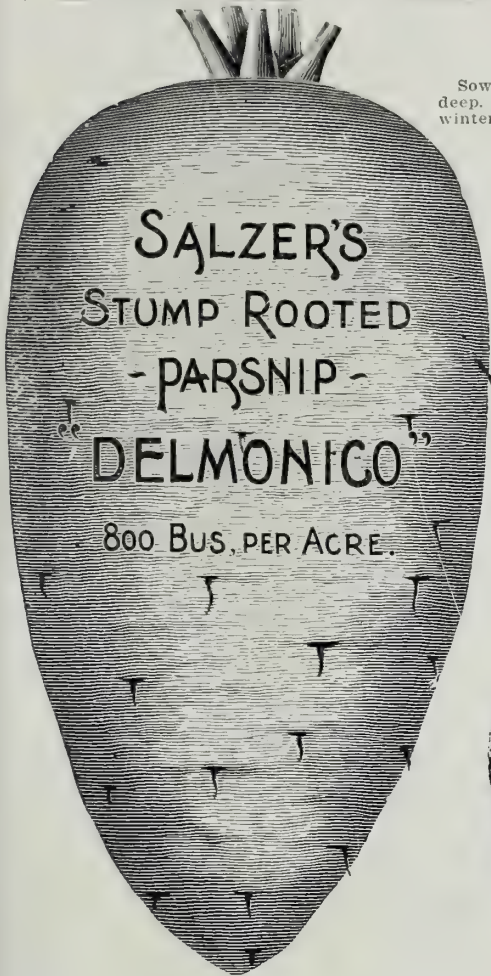 Sow
deep.
winter
SALZER'S
STUMP ROOTED
- PARSNIP -
"DELMONICO"
800 BUS. PER ACRE.